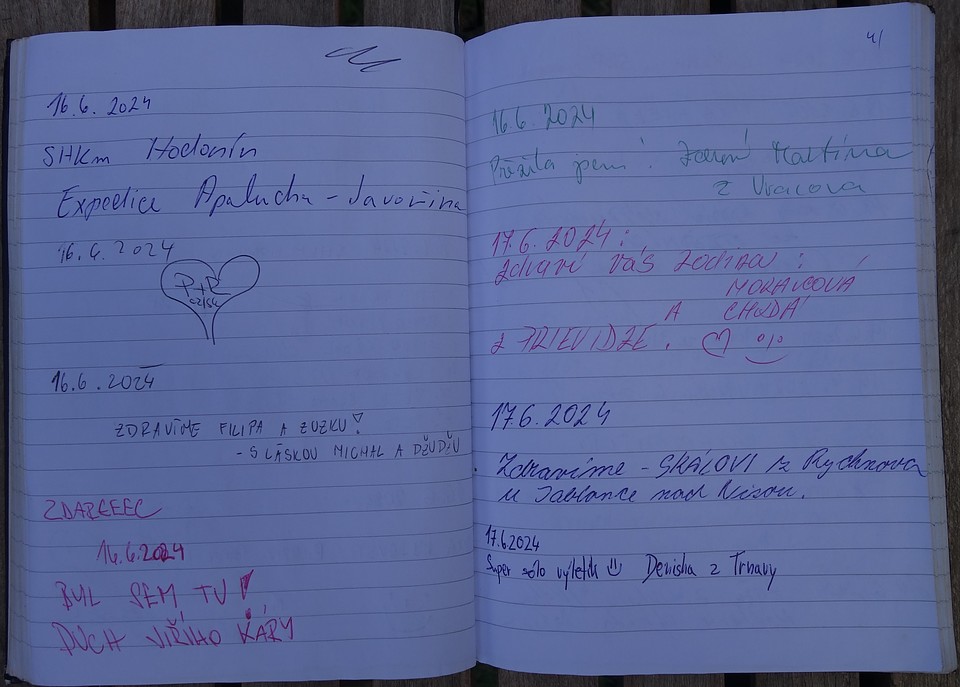 16.6. 2024
SHKm Hodonín
Expedice Apalucha - Javořina
16.6. 2024
P+R
16.6. 2024
ZDRAVÍME FILIPA A ZUZKU!
- S LÁSKOU MICHAL A DŽUDŽU
ZDAREEEC
16.6.2024
BYL SEM TU!
DUCH VIŘÍHO KÁRY
4/
16.6. 2024
Přežila jsem! Zdraví Martina
z Vracova
17.6. 2024:
Zdraví vás rodina:
MORAVCOVÁ
A CHUDÁ
z PRIEVIDZE.
17.6.2024
Zdravíme - SKÁLOVI z Rychnova
u Jablonce nad Nisou.
17.6.2024
Super sólo výletík Deniska z Trnavy